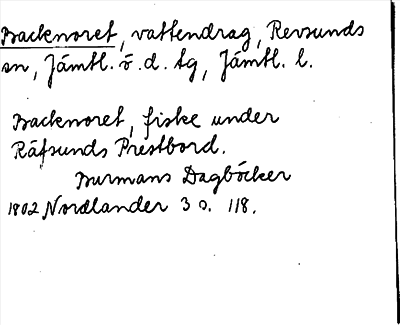 Backnoret, vattendrag, Revsunds
sn, Jämtl. ö. d. tg, Jämtl. l.
Backnoret, fiske under
Räfsunds Prestbord.
Burmans Dagböcker
1802 Nordlander 3 o. 118.